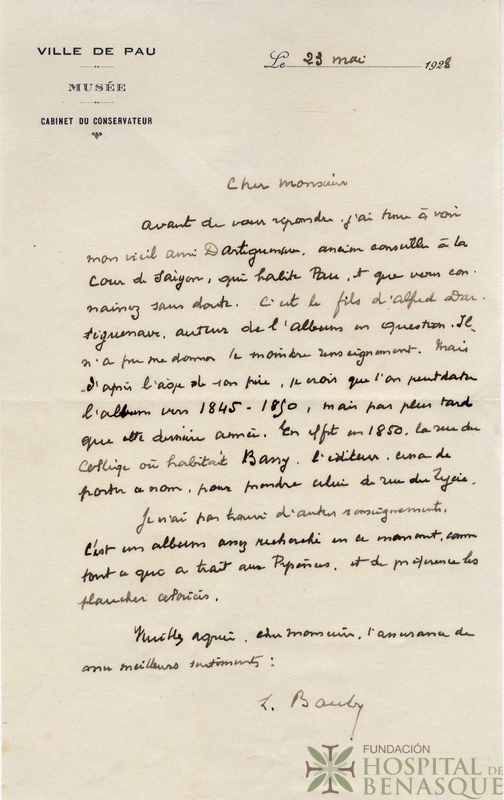 VILLE DE PAU
MUSÉE
CABINET DU CONSERVATEUR
Le 23 mai 1928
Cher Monsieur
Avant de vous répondre, j'ai tenu à voir
mon vieil ami Dartiguenave, ancien conseiller à la
Cour de Saïgon, qui habite Pau, et que vous con-
naissez sans doute. C'est le fils d'Alfred Dar-
tiguenave, auteur de l'album en question. Il
n'a pu me donner le moindre renseignement. Mais
d'après l'âge de son père, je crois que l'on peut dater
l'album vers 1845-1850, mais pas plus tard
que cette dernière année. En effet en 1850, la rue du
Collège où habitait Bassy, l'éditeur, cessa de
porter ce nom, pour prendre celui de rue du Lycée.
Je n'ai pas trouvé d'autres renseignements.
C'est un album assez recherché en ce moment, comme
tout ce qui a trait aux Pyrénées, et de préférence les
planches coloriées.
Veuillez agréer, cher monsieur, l'assurance de
mes meilleurs sentiments :
FUNDACIÓN
HOSPITAL DE
BENASQUE